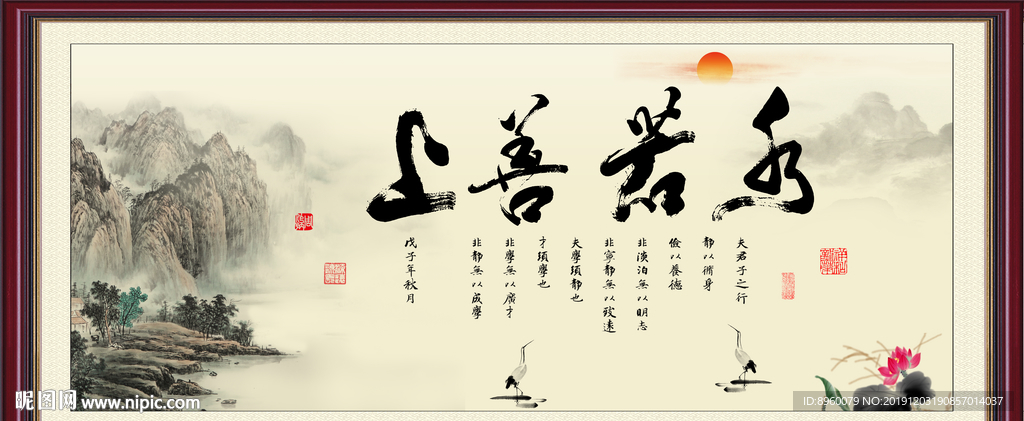 上善若水
夫君子之行
靜以脩身
儉以養德
非淡泊無以明志
非寧靜無以致遠
夫學須靜也
才須學也
非學無以廣才
非靜無以成學
戊子年秋月
昵图网 www.nipic.com
ID:8960079 NO:20191203190857014037